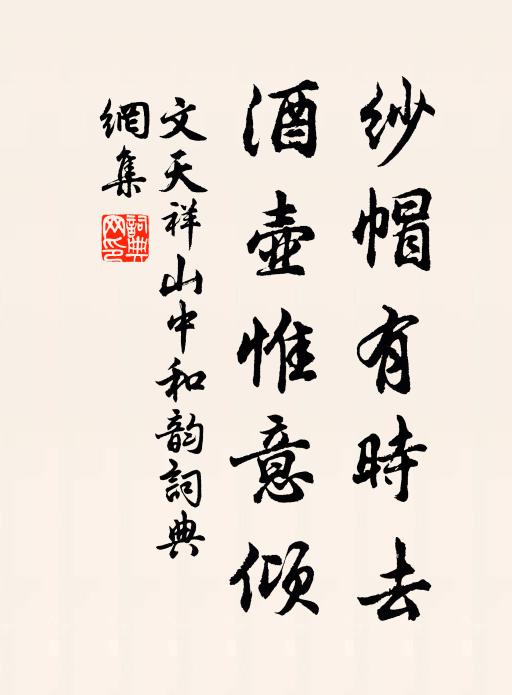 紗帽有時去
酒壺惟意傾
文天祥山中和韵詞典
網集
詞典網印